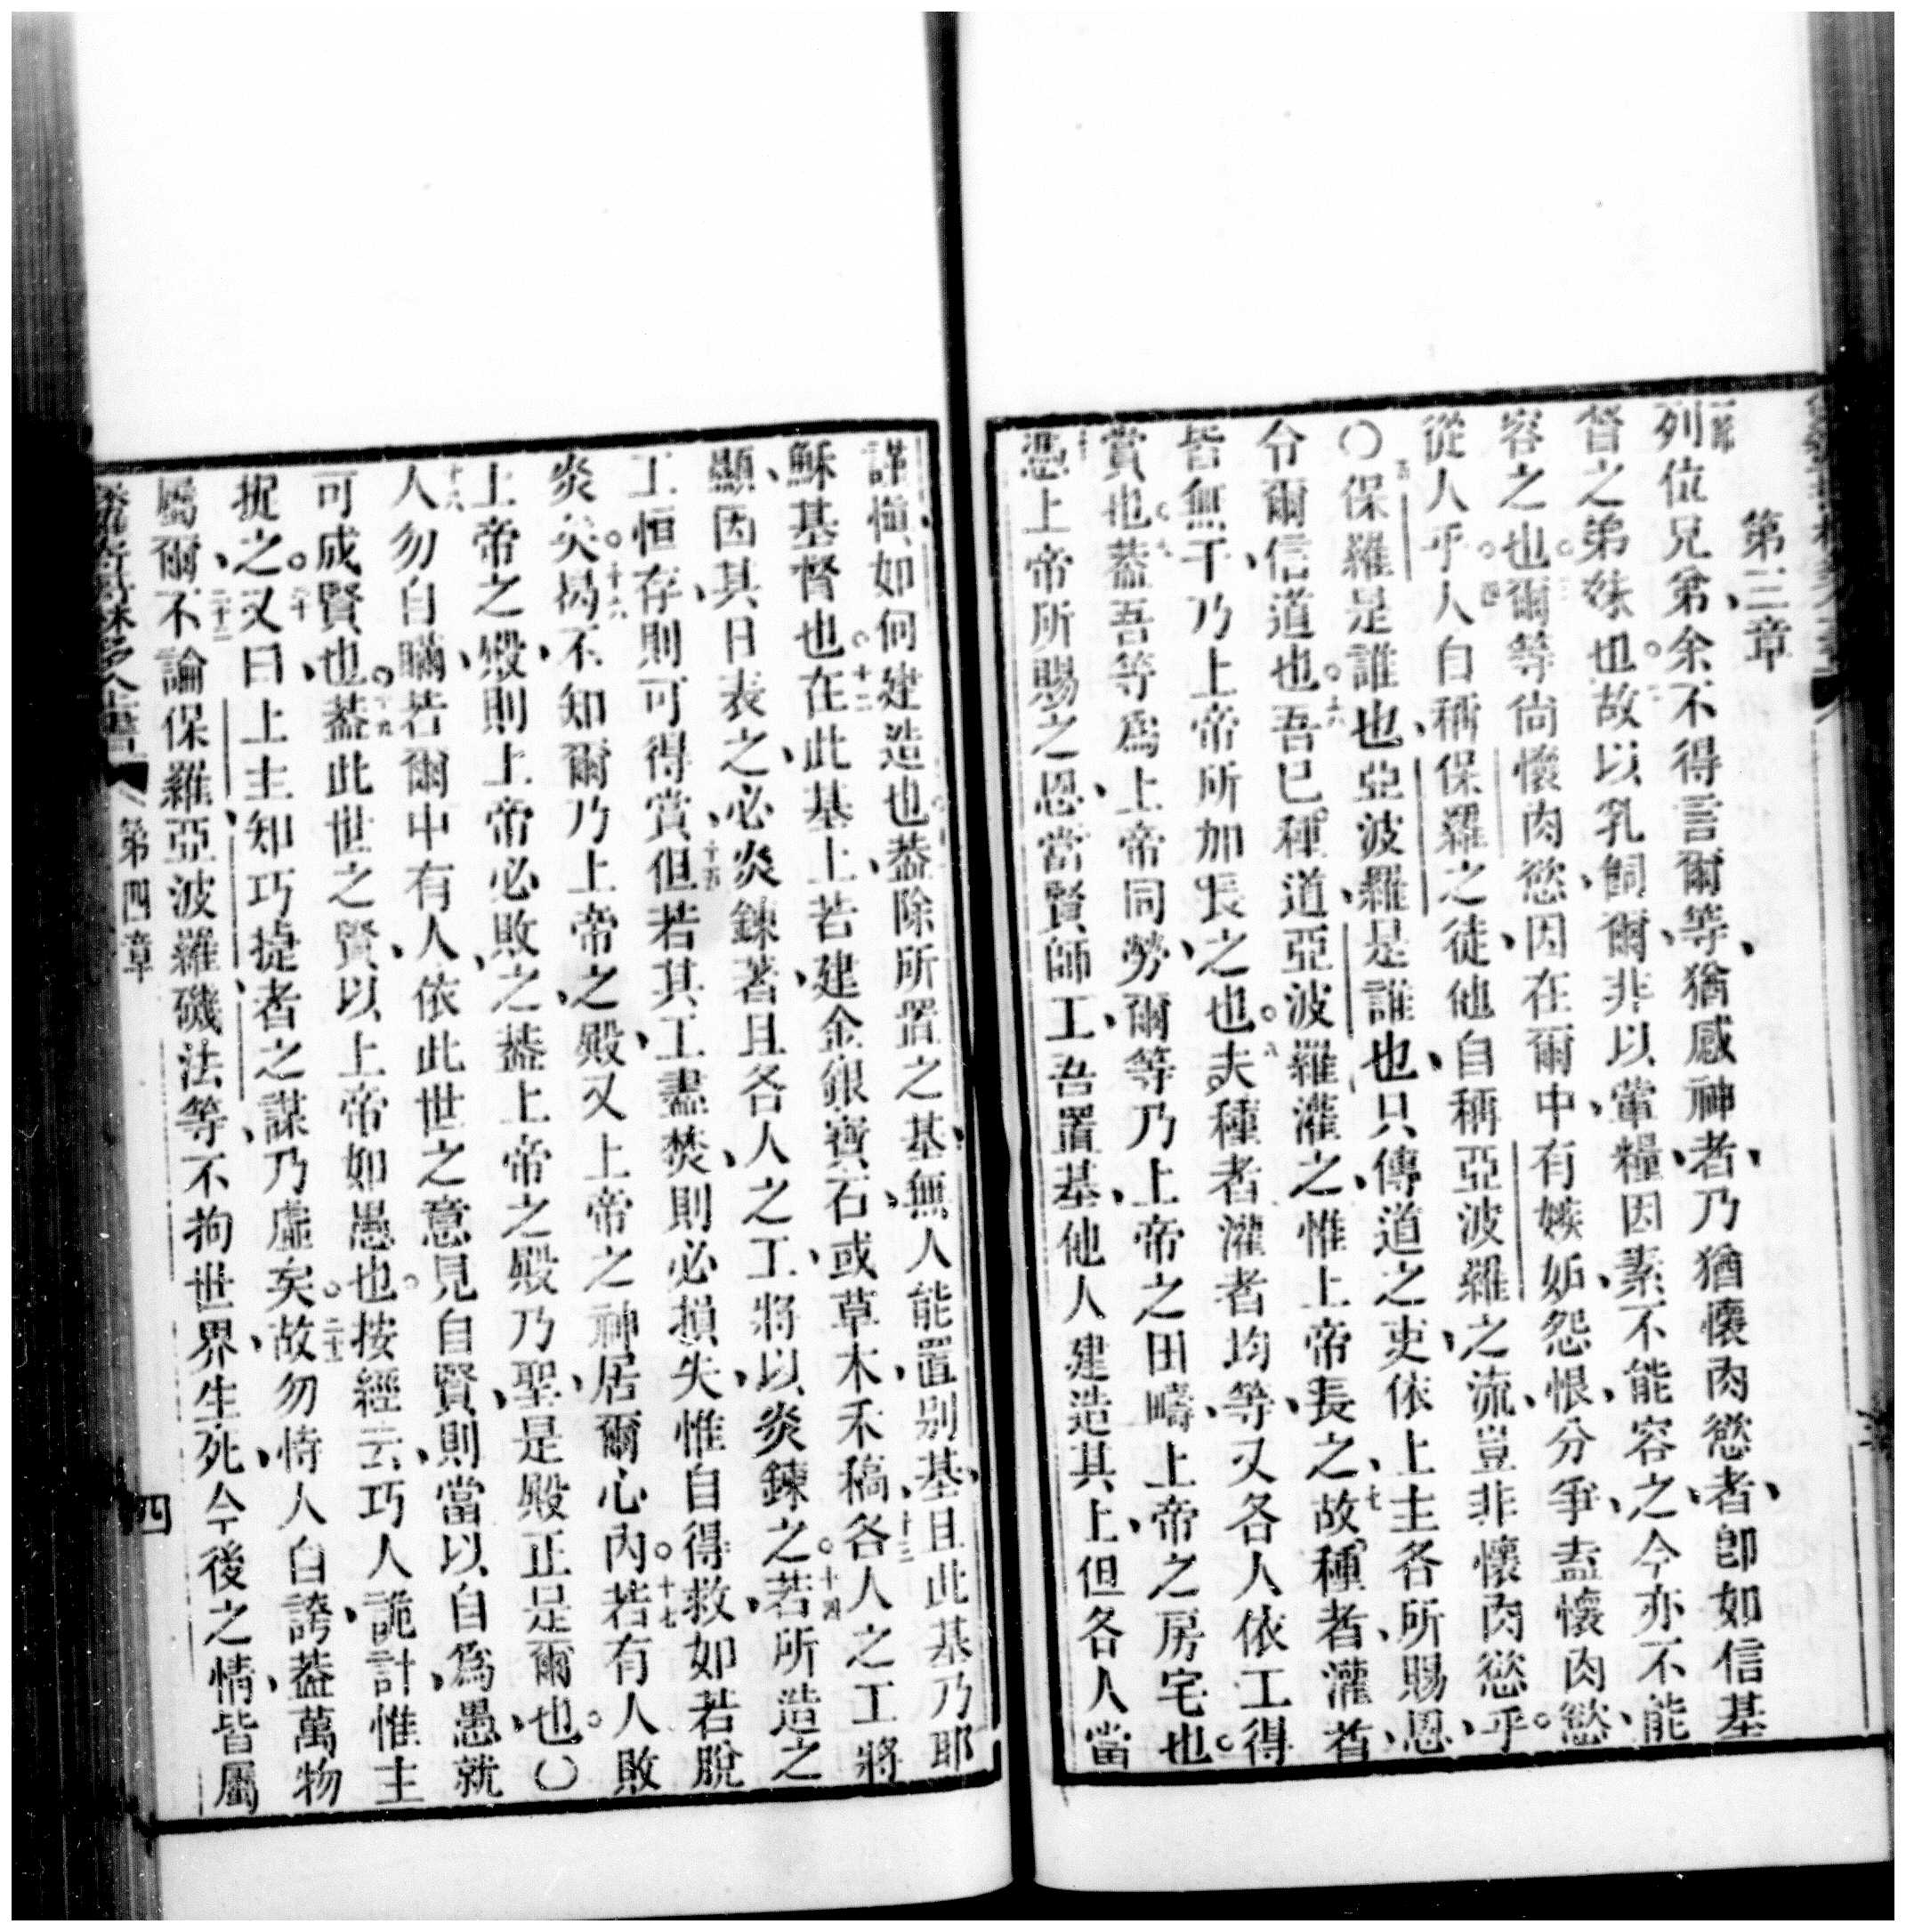 第三章
一節
列位兄弟余不得言爾等、猶感神者、乃猶懷肉慾者、卽如信基
督之弟妹也。二故以乳飼爾、非以葷糧、因素不能容之、今亦不能
容之也。三爾等尙懷肉慾、因在爾中、有嫉妬、怨恨、分爭、盍懷肉慾、
從人乎。四人自稱保羅之徒、他自稱亞波羅之流、豈非懷肉慾乎。
〇五保羅是誰也、亞波羅是誰也、只傳道之吏、依上主各所賜恩、
令爾信道也。六吾已種道、亞波羅灌之、惟上帝長之、七故種者、灌者、
皆無干、乃上帝所加長之也。八夫種者灌者均等、又各人依工得
賞也。九蓋吾等爲上帝同勞、爾等乃上帝之田疇、上帝之房宅也。
十憑上帝所賜之恩、當賢師工、吾置基、他人建造其上、但各人當
謹愼、如何建造也。蓋除所置之基、無人能置別基、且此基乃耶
穌基督也。十二在此基上、若建金銀寶石、或草木禾稿、十三各人之工將
顯、因其日表之、必炎鍊著、且各人之工、將以炎鍊之。十四若所造之
工恒存、則可得賞、十五但若其工盡焚、則必損失、惟自得救、如若脫
炎矣。十六曷不知爾乃上帝之殿、又上帝之神、居爾心內。十七若有人敗
上帝之殿、則上帝必敗之、蓋上帝之殿乃聖、是殿正是爾也。〇
十八人勿自瞞、若爾中有人、依此世之意見自賢、則當以自爲愚、就
可成賢也。十九蓋此世之賢、以上帝如愚也。按經云、巧人詭計、惟主
捉之。二十又曰、上主知巧捷者之謀、乃虛矣。二十一故勿恃人自誇、蓋萬物
屬爾、二十二不論保羅亞波羅磯法等、不拘世界、生死、今後之情、皆屬
第四章
四